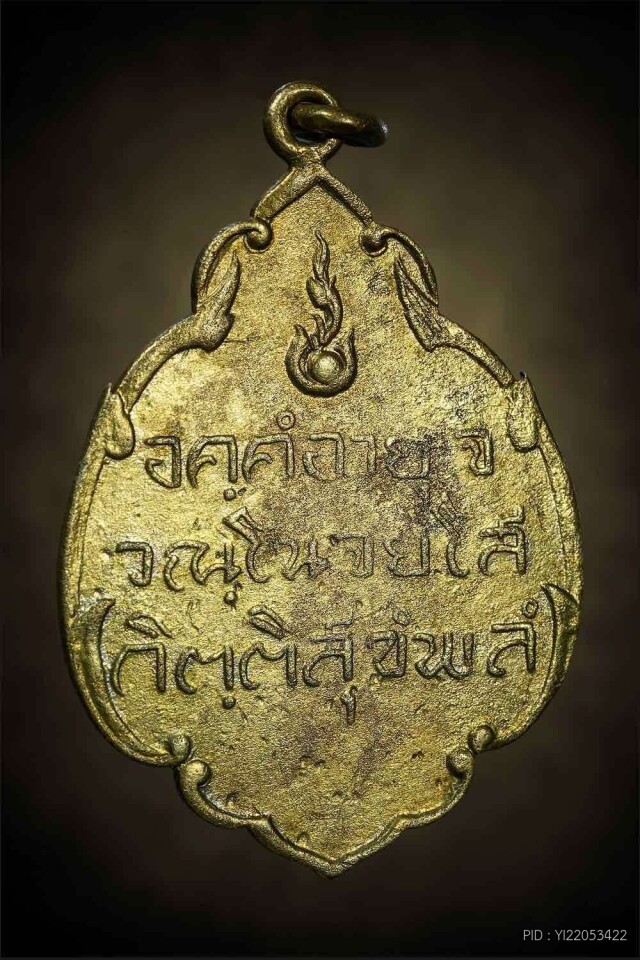 อคฺคํอายุ จ
วณฺโณจยโส
กิตฺติสุขํพลํ
PID : YI22053422